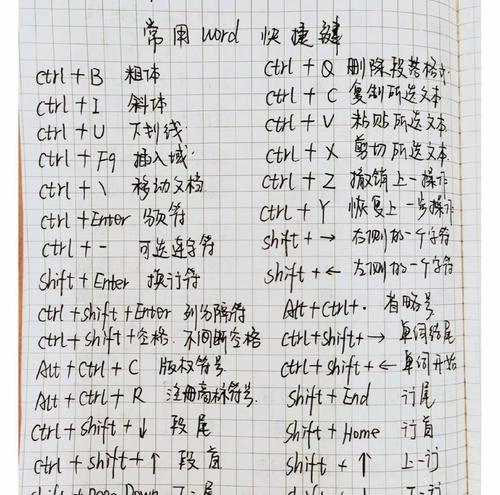 常用word 快捷键
ctrl + B 粗体
ctrl + I 斜体
ctrl + U 下划线
ctrl + F9 插入域
ctrl + \ 移动文档
ctrl + Enter 分页符
ctrl + - 可选连字符
shift + Enter 换行符
ctrl + shift + Enter 列分隔符
ctrl + shift + 空格 不间断空格
Alt + ctrl + C 版权符号
Alt + ctrl + R 注册商标符号
ctrl + shift + ↓ 段尾
ctrl + shift + ↑ 段首
shift + page Down 下一屏
ctrl + Q 删除段落格式
ctrl + C 复制所选文本
ctrl + V 粘贴所选文本
ctrl + X 剪切所选文本
ctrl + Z 撤销上一操作
ctrl + Y 恢复上一步操作
shift + → 右侧的一个字符
shift + ← 左侧的一个字符
Alt + ctrl + . 省略号
ctrl + shift + → 单词结尾
ctrl + shift + ← 单词开始
shift + End 行尾
shift + Home 行首
shift + ↑ 上一行